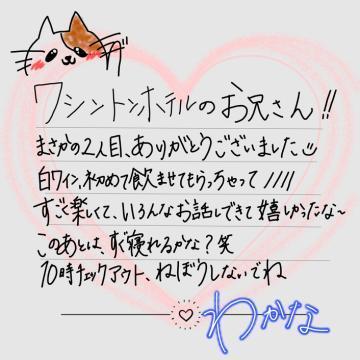 ワシントンホテルのお兄さん!!
まさかの2人目、ありがとうございました
白ワイン、初めて飲ませてもらっちゃって////
すごく楽しくて、いろんなお話しできて嬉しかったな〜
このあとは、すぐ寝れるかな?笑
10時チェックアウト、ねぼうしないでね
わかな